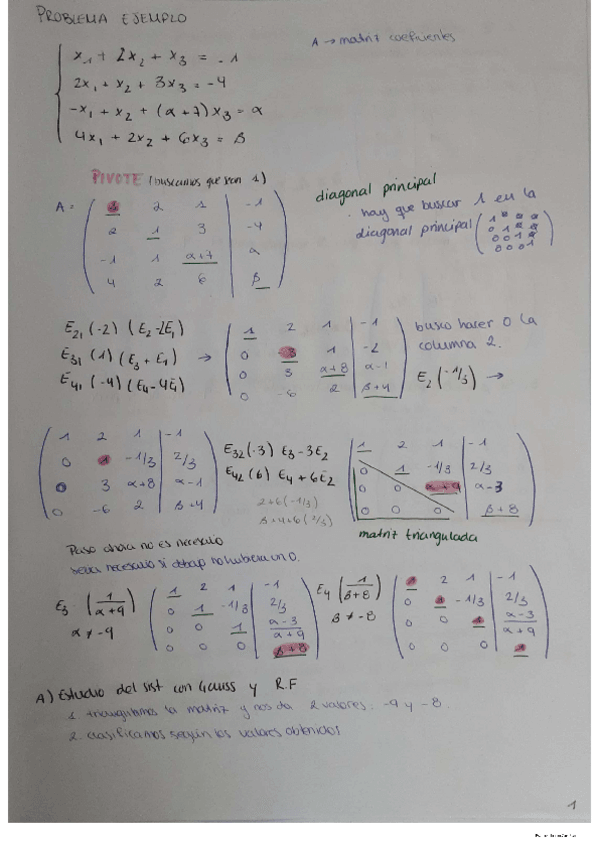 PROBLEMA EJEMPLO
A → matriz coeficientes
x₁ + 2x₂ + x₃ = -1
2x₁ + x₂ + 3x₃ = -4
-x₁ + x₂ + (α+7)x₃ = α
4x₁ + 2x₂ + 6x₃ = β
PIVOTE (buscamos que sean 1)
diagonal principal
hay que buscar 1 en la
diagonal principal
A =
1 2 1 | -1
2 1 3 | -4
-1 1 α+7 | α
4 2 6 | β
E₂₁(-2) (E₂-2E₁)
E₃₁(1) (E₃+E₁) →
E₄₁(-4) (E₄-4E₁)
1 2 1 | -1
0 -3 1 | -2
0 3 α+8 | α-1
0 -6 2 | β+4
busco hacer 0 la
columna 2.
E₂(-1/3) →
1 2 1 | -1
0 1 -1/3 | 2/3
0 3 α+8 | α-1
0 -6 2 | β+4
E₃₂(-3) E₃-3E₂
E₄₂(6) E₄+6E₂
2+6(-1/3)
β+4+6(2/3)
1 2 1 | -1
0 1 -1/3 | 2/3
0 0 α+9 | α-3
0 0 0 | β+8
matriz triangulada
Paso ahora no es necesario
seria necesario si debajo no hubiera un 0.
E₃ (1/α+9)
α ≠ -9
1 2 1 | -1
0 1 -1/3 | 2/3
0 0 1 | α-3/α+9
0 0 0 | β+8
E₄ (1/β+8)
β ≠ -8
1 2 1 | -1
0 1 -1/3 | 2/3
0 0 1 | α-3/α+9
0 0 0 | 1
A) Estudio del sist con Gauss y R.F
1. triangulamos la matriz y nos da 2 valores. -9 y -8.
2. clasificamos según los valores obtenidos
1